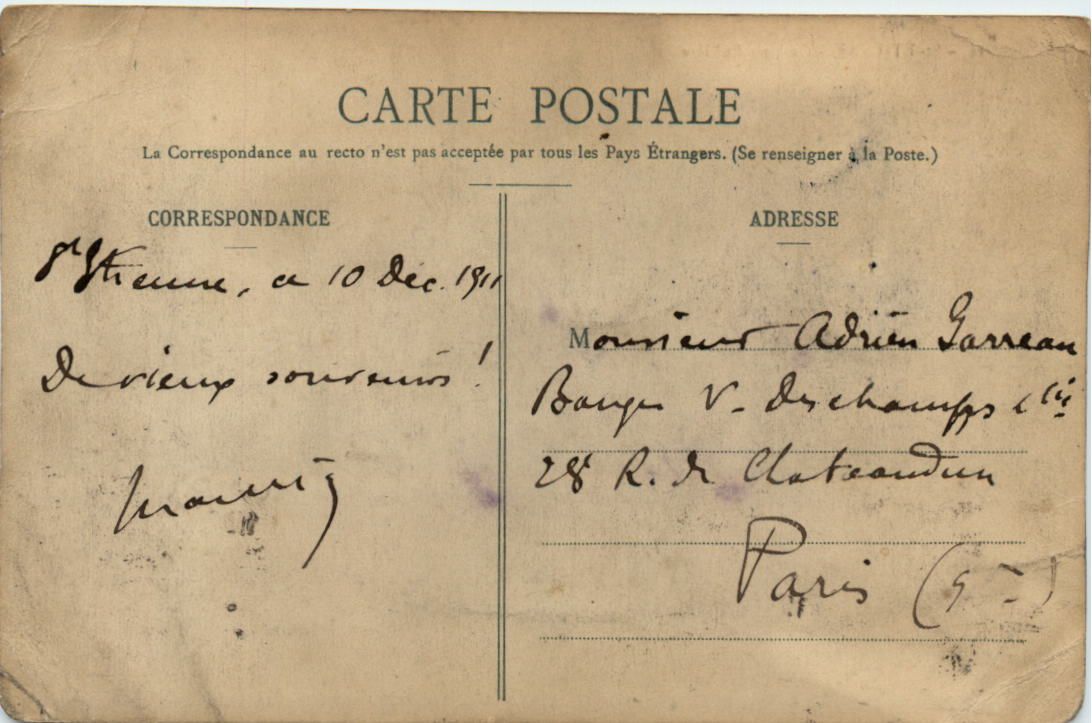 CARTE POSTALE
La Correspondance au recto n'est pas acceptée par tous les Pays Étrangers. (Se renseigner à la Poste.)
CORRESPONDANCE
St Etienne, ce 10 Déc. 1911
De vieux souvenirs !
ADRESSE
Monsieur Adrien Garreau
Banque V. Deschamps & Cie
28 R. de Chateaudun
Paris (9